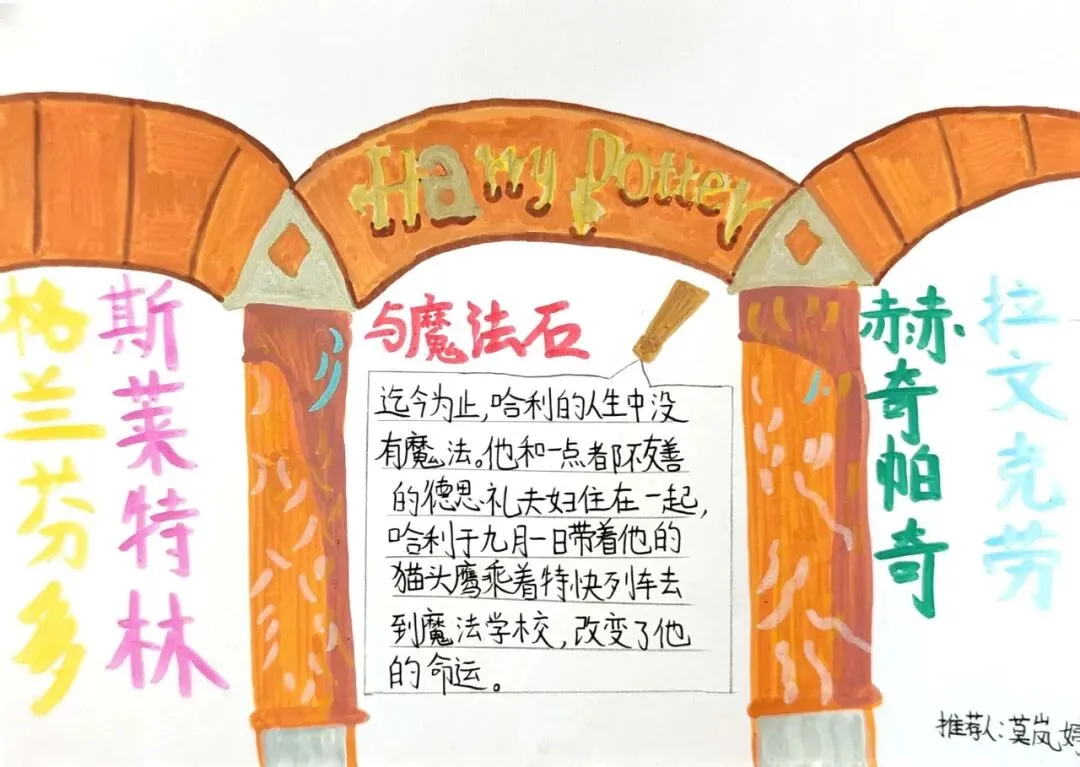 Harry Potter
与魔法石
格兰芬多
斯莱特林
迄今为止,哈利的人生中没
有魔法。他和一点都不友善
的德思礼夫妇住在一起,
哈利于九月一日带着他的
猫头鹰乘着特快列车去
到魔法学校,改变了他
的命运。
赫奇帕奇
拉文克劳
推荐人:莫岚